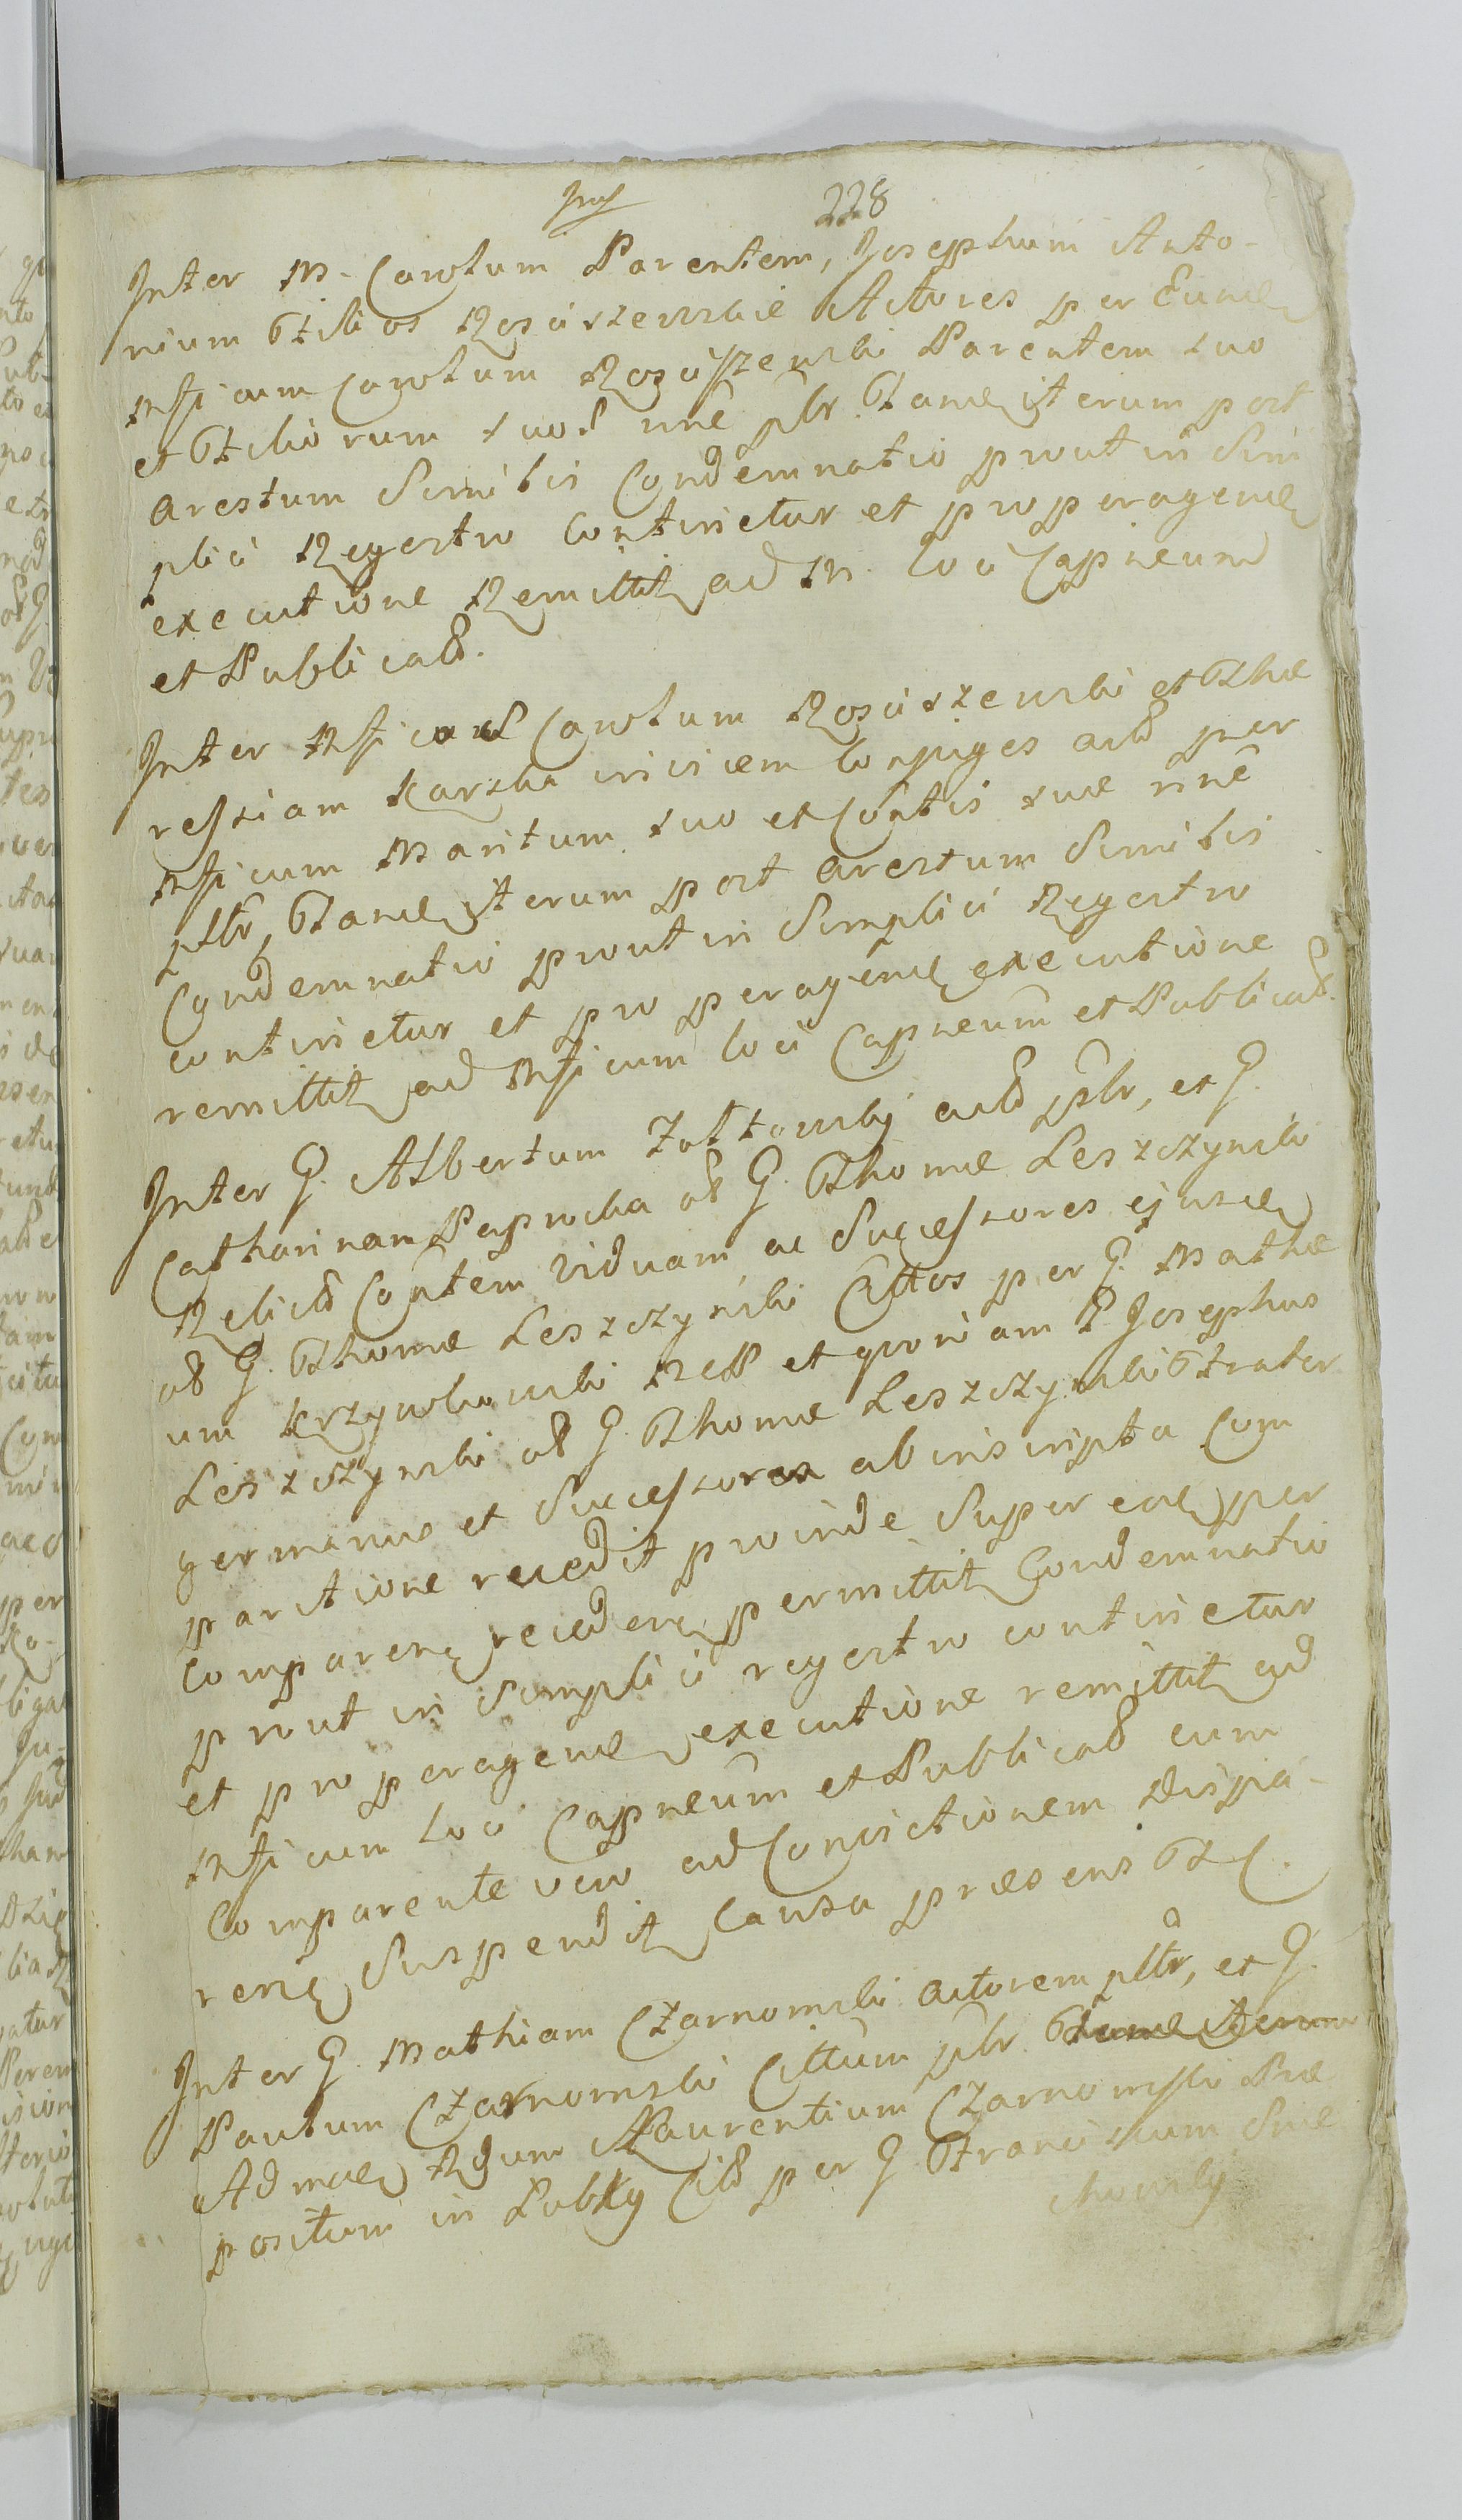 228
Inter M. Carolum Parentem, Josephum Anto-
nium Filios Rosciszewskie Actores per Eund
Mficum Carolum Rosciszewski Parentem suo
et Filiorum suor nne plr. Tand iterum post
arestum Similis Condemnatio prout in Sim
plici Regestro Continetur et pro peragend
executione Remittit ad M. loci Capneum
et Publicad.
Inter Mficos Carolum Rosciszewski et The
resiam Karska invicem Conjuges act per
Mficum Maritum suo et Contis suae nne
pltr, Tand iterum post arestum Similis
Condemnatio prout in Simplici Regestro
continetur et pro peragend executione
remittit ad Mficum loci Capneum et Publicad.
Inter G. Albertum Zoltowski act pltr, et G.
Catharinam Paprocka ol G. Thomae Leszczynski
Relict Contem Viduam ac Successores ejusd
ol G. Thomae Leszczynski Cittos per G. Mathe
um Krzywkowski et quoniam G. Josephus
Leszczynski ol G. Thomae Leszczynski Frater
germanus et Successores ab inscripta Com
paritione recedit proinde Super eund per
Comparen receden permittit Condemnatio
prout in Simplici regestro continetur
et pro peragend executione remittit ad
Mficum loci Capneum et Publicad cum
Comparente vero ad Convictionem dispa-
ren Suspendit Causa praesens
Inter G. Mathiam Czarnomski Actorem pltr, et G.
Paulum Czarnomski Cittum plr. Tand iterum
Admod Rdum Laurentium Czarnomski Prae
positum in Cit per G Franciscum Snie
chowsky